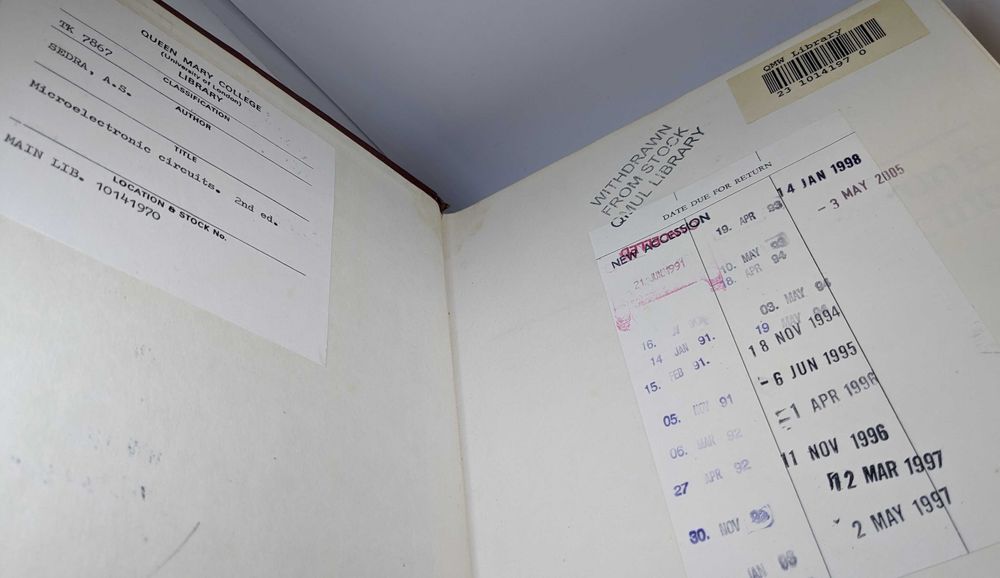 QUEEN MARY COLLEGE
(University of London)
LIBRARY
CLASSIFICATION
TK 7867
AUTHOR
SEDRA, A.S.
TITLE
Microelectronic circuits. 2nd ed.
LOCATION & STOCK No.
MAIN LIB. 10141970
QMW Library
23 1014197 0
WITHDRAWN
FROM STOCK
QMUL LIBRARY
DATE DUE FOR RETURN
NEW ACCESSION
21 JUN 1991
16.
14 JAN 91.
15. FEB 91.
05. NOV 91
06. MAR 92
27 APR 92
30. NOV
19. APR 93
10. MAY
18. APR 94
03. MAY 94
19 MAY
18 NOV 1994
- 6 JUN 1995
1 APR 1996
11 NOV 1996
12 MAR 1997
2 MAY 1997
14 JAN 1998
- 3 MAY 2005